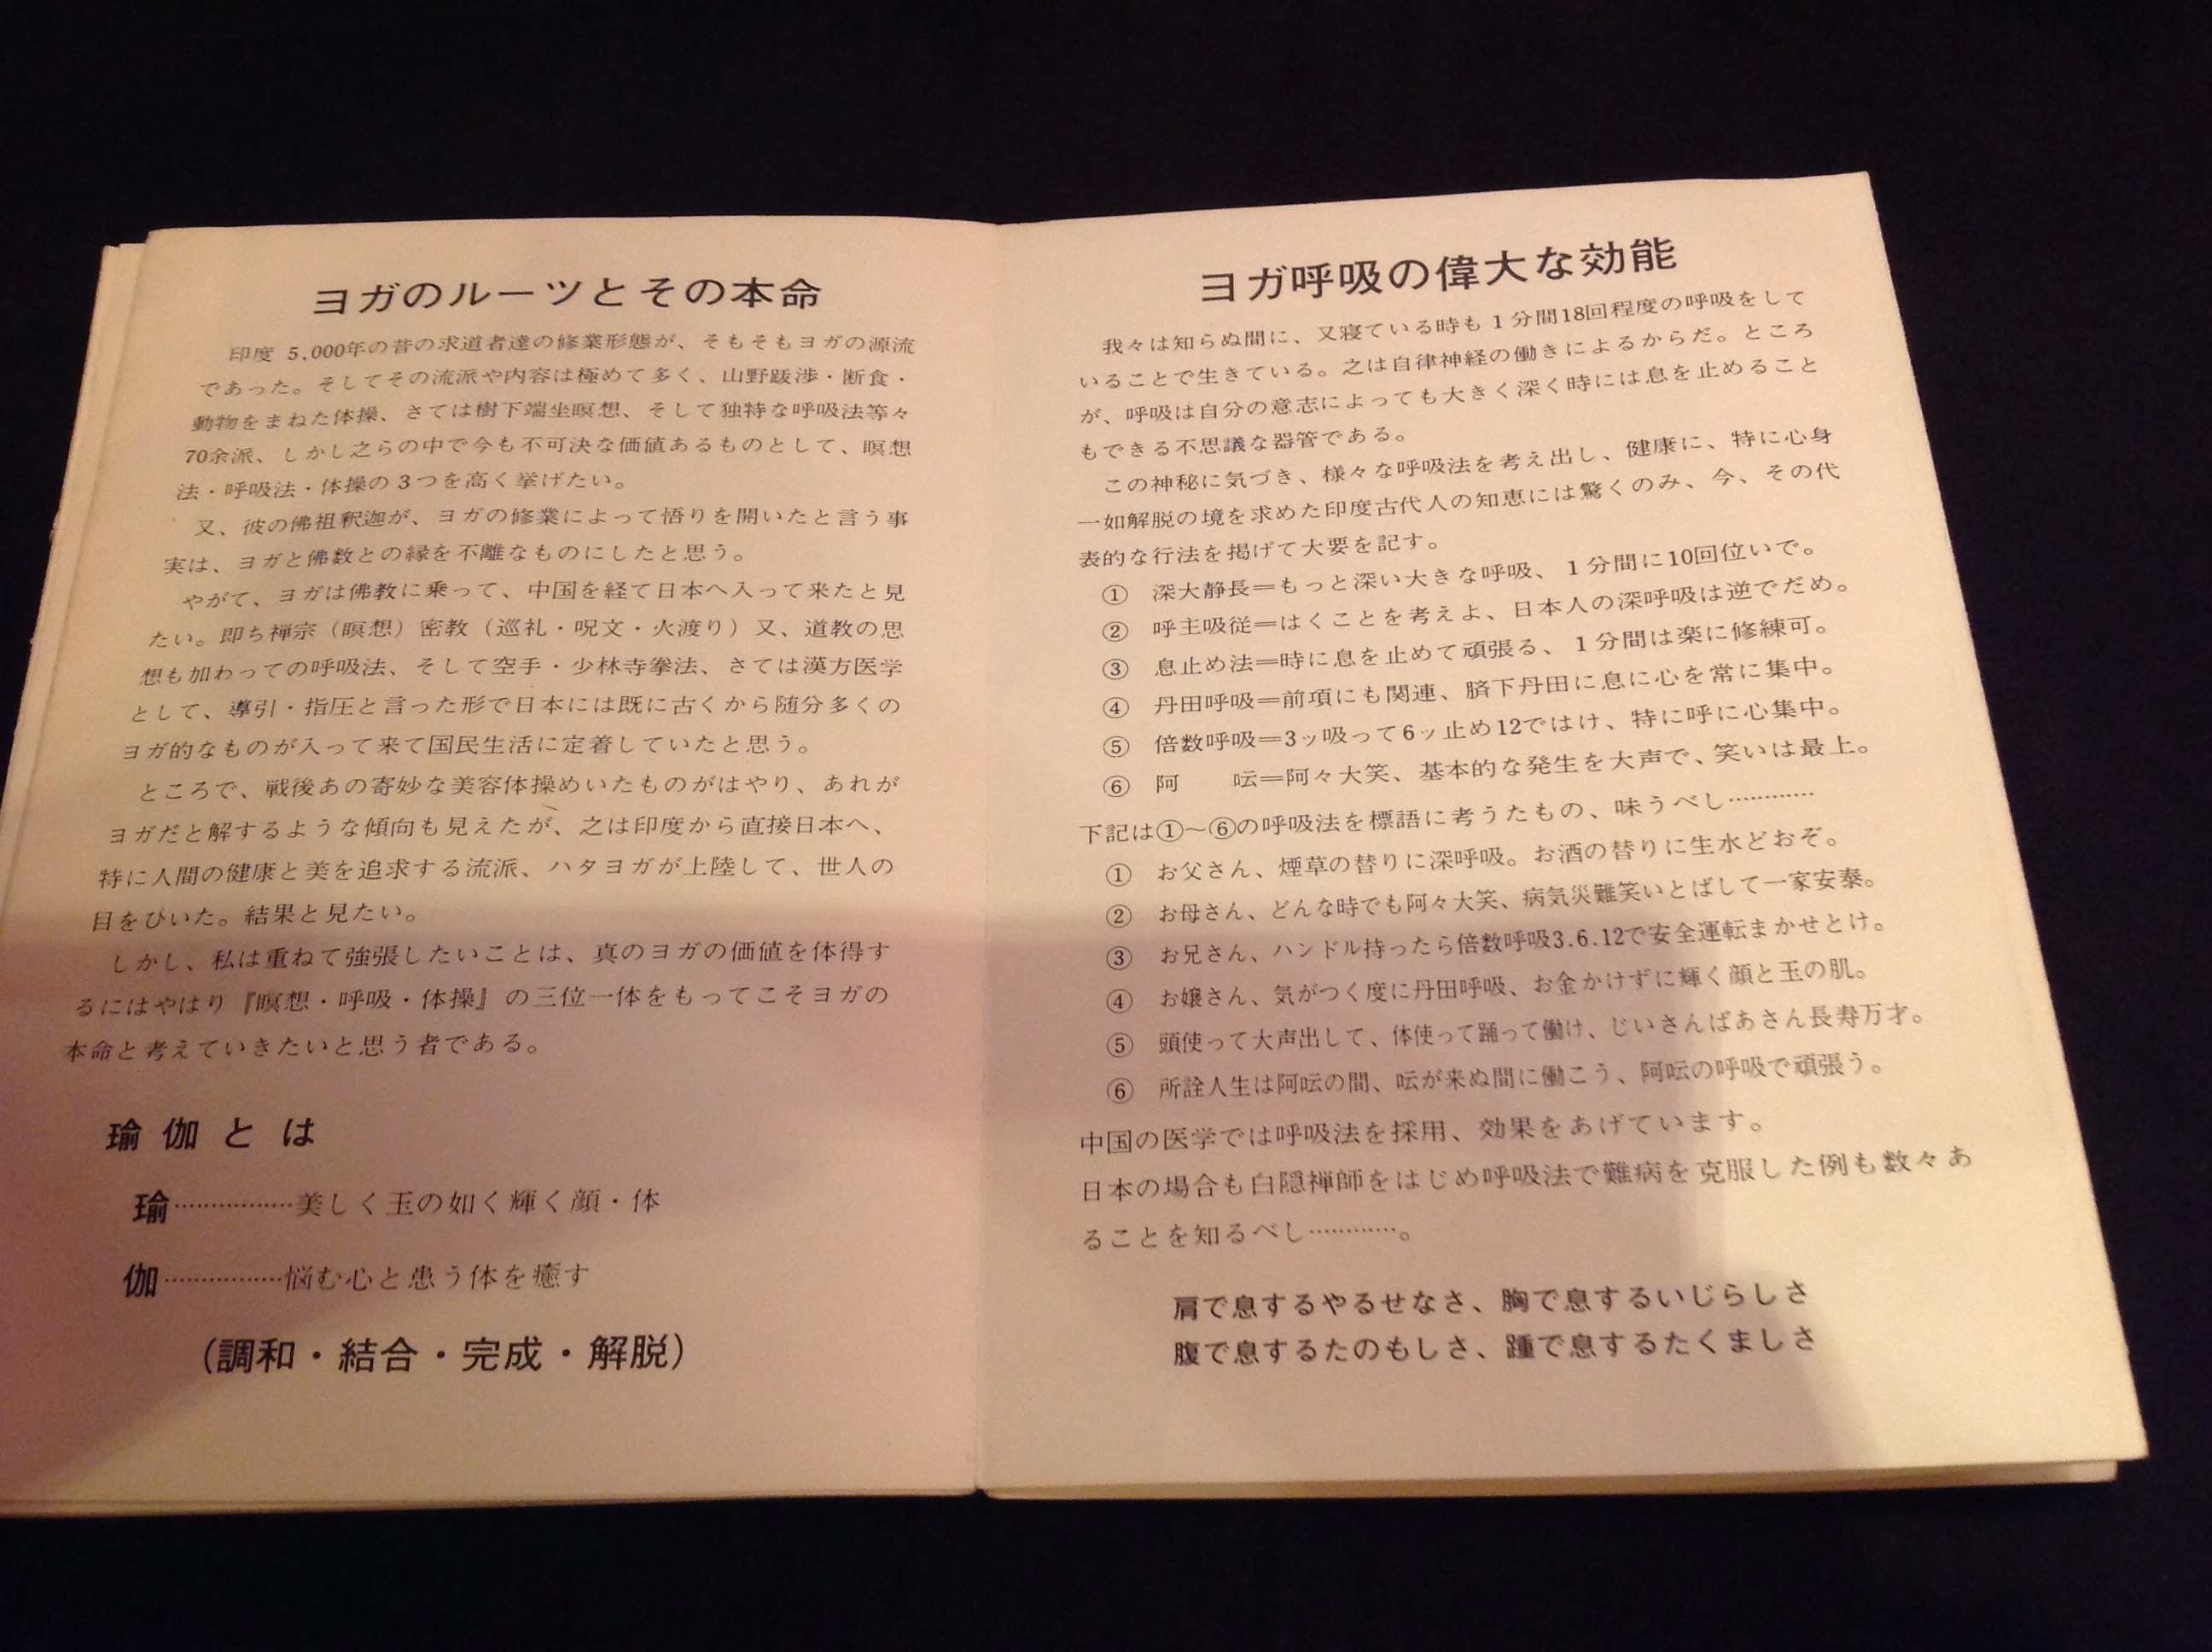 ヨガのルーツとその本命
印度 5,000年の昔の求道者達の修業形態が、そもそもヨガの源流
であった。そしてその流派や内容は極めて多く、山野跋渉・断食・
動物をまねた体操、さては樹下端坐瞑想、そして独特な呼吸法等々
70余派、しかし之らの中で今も不可決な価値あるものとして、瞑想
法・呼吸法・体操の3つを高く挙げたい。
又、彼の佛祖釈迦が、ヨガの修業によって悟りを開いたと言う事
実は、ヨガと佛数との縁を不離なものにしたと思う。
やがて、ヨガは佛教に乗って、中国を経て日本へ入って来たと見
たい。即ち禅宗（瞑想）密教（巡礼・呪文・火渡り）又、道教の思
想も加わっての呼吸法、そして空手・少林寺拳法、さては漢方医学
として、導引・指圧と言った形で日本には既に古くから随分多くの
ヨガ的なものが入って来て国民生活に定着していたと思う。
ところで、戦後あの寄妙な美容体操めいたものがはやり、あれが
ヨガだと解するような傾向も見えたが、之は印度から直接日本へ、
特に人間の健康と美を追求する流派、ハタヨガが上陸して、世人の
目をひいた。結果と見たい。
しかし、私は重ねて強張したいことは、真のヨガの価値を体得す
るにはやはり『瞑想・呼吸・体操』の三位一体をもってこそヨガの
本命と考えていきたいと思う者である。
瑜伽とは
瑜················美しく玉の如く輝く顔・体
伽················悩む心と患う体を癒す
（調和・結合・完成・解脱）
ヨガ呼吸の偉大な効能
我々は知らぬ間に、又寝ている時も1分間18回程度の呼吸をして
いることで生きている。之は自律神経の働きによるからだ。ところ
が、呼吸は自分の意志によっても大きく深く時には息を止めること
もできる不思議な器管である。
この神秘に気づき、様々な呼吸法を考え出し、健康に、特に心身
一如解脱の境を求めた印度古代人の知恵には驚くのみ、今、その代
表的な行法を掲げて大要を記す。
① 深大静長＝もっと深い大きな呼吸、1分間に10回位いで。
② 呼主吸従＝はくことを考えよ、日本人の深呼吸は逆でだめ。
③ 息止め法＝時に息を止めて頑張る、1分間は楽に修練可。
④ 丹田呼吸＝前項にも関連、臍下丹田に息に心を常に集中。
⑤ 倍数呼吸＝3ッ吸って6ッ止め12ではけ、特に呼に心集中。
⑥ 阿　　呍＝阿々大笑、基本的な発生を大声で、笑いは最上。
下記は①〜⑥の呼吸法を標語に考うたもの、味うべし············
① お父さん、煙草の替りに深呼吸。お酒の替りに生水どおぞ。
② お母さん、どんな時でも阿々大笑、病気災難笑いとばして一家安泰。
③ お兄さん、ハンドル持ったら倍数呼吸3.6.12で安全運転まかせとけ。
④ お嬢さん、気がつく度に丹田呼吸、お金かけずに輝く顔と玉の肌。
⑤ 頭使って大声出して、体使って踊って働け、じいさんばあさん長寿万才。
⑥ 所詮人生は阿呍の間、呍が来ぬ間に働こう、阿呍の呼吸で頑張う。
中国の医学では呼吸法を採用、効果をあげています。
日本の場合も白隠禅師をはじめ呼吸法で難病を克服した例も数々あ
ることを知るべし············。
肩で息するやるせなさ、胸で息するいじらしさ
腹で息するたのもしさ、踵で息するたくましさ